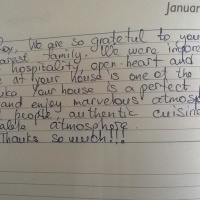 Janua
We are so grateful to you
family. We were impre
hospitality, open heart and
at your house is one of the
Your house is a perfect
and enjoy marvelous atmosp
people authentic cuisin
atmosphere.
Thanks so much!!!